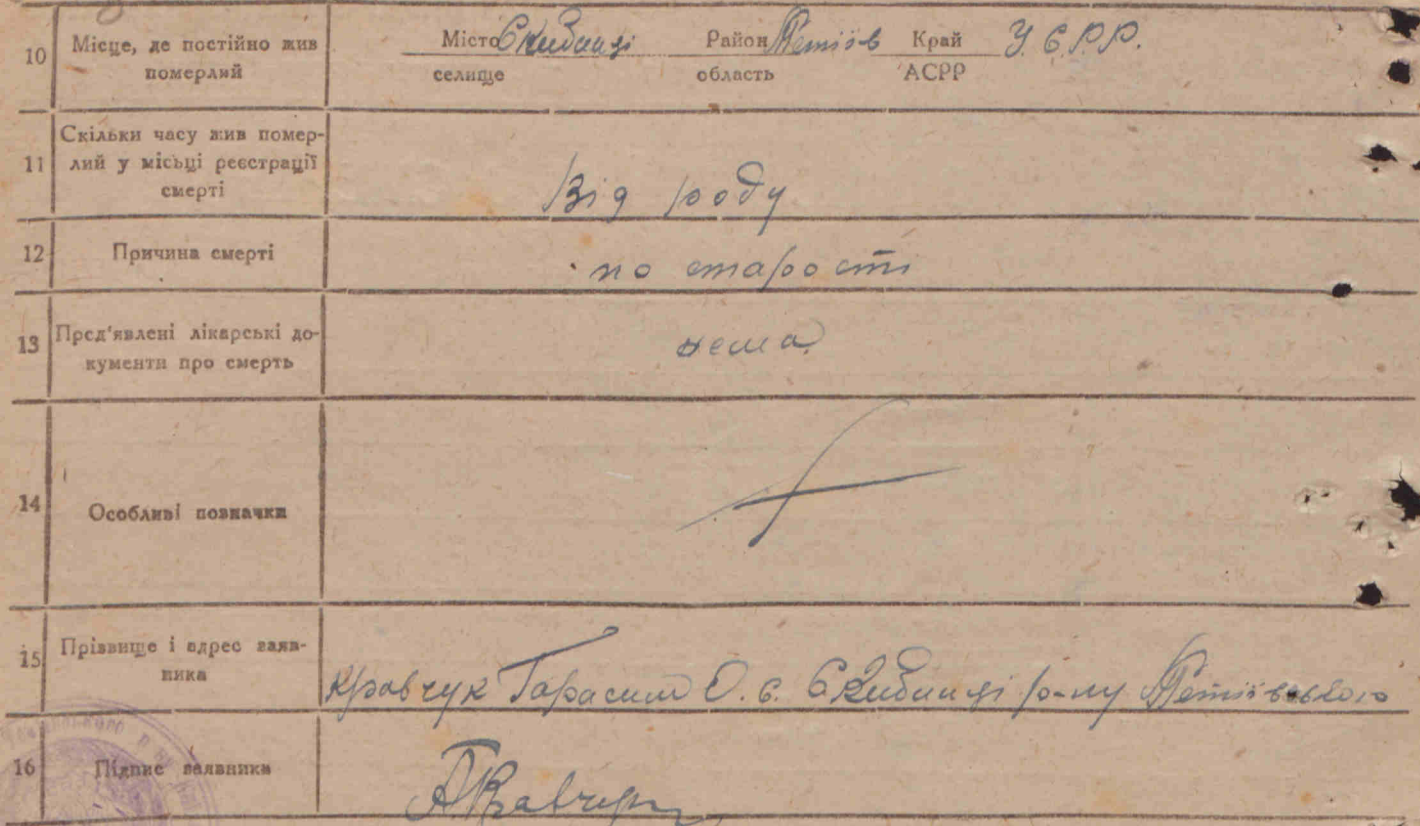 10 Місце, де постійно жив Місто Скибинці Район Тетіїв Край У.С.Р.Р.
померлий селище область АСРР
11 Скільки часу жив помер-
лий у місьці реєстрації
смерті Від роду
12 Причина смерті по старости
13 Пред'явлені лікарські до- нема
кументи про смерть
14 Особливі позначки
15 Прізвище і адрес заяв-
ника Кравчук Тарасим О. с. Скибинці р-ну Тетіївського
16 Підпис заявника Кравчук